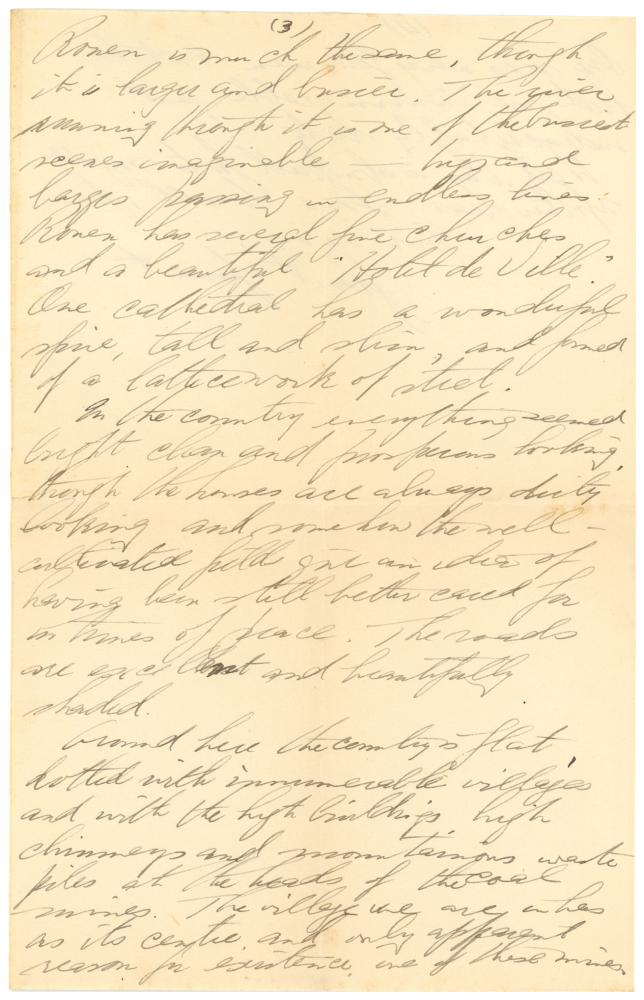 (3)
Rouen is much the same, though
it is larger and busier. The river
running through it is one of the busiest
scenes imaginable — tugs and
barges passing in endless lines.
Rouen has several fine churches
and a beautiful "Hotel de Ville."
One cathedral has a wonderful
spire, tall and slim, and formed
of a latticework of steel.
In the country everything seemed
bright clean and prosperous looking,
though the houses are always dirty
looking and somehow the well-
cultivated fields give an idea of
having been still better cared for
in times of peace. The roads
are excellent and beautifully
shaded.
Around here the country is flat
dotted with innumerable villages
and with the high buildings high
chimneys and mountainous waste
piles at the heads of the coal
mines. The village we are in has
as its centre, and only apparent
reason for existence, one of these mines